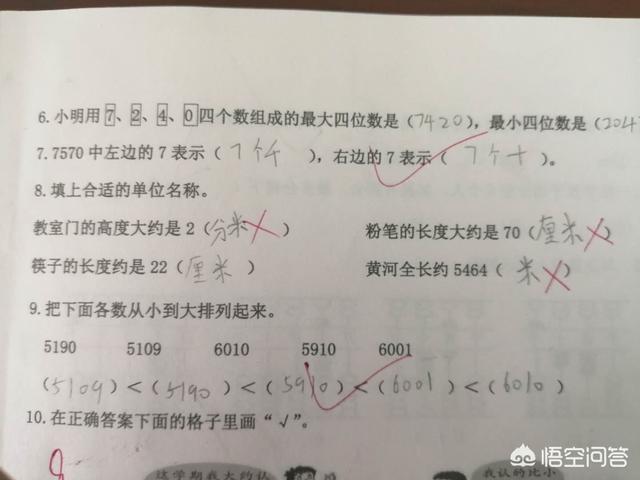 6.小明用7、2、4、0四个数组成的最大四位数是（7420），最小四位数是（2047
7.7570中左边的7表示（7个千），右边的7表示（7个十）。
8.填上合适的单位名称。
教室门的高度大约是2（分米） 粉笔的长度大约是70（厘米）
筷子的长度约是22（厘米） 黄河全长约5464（米）
9.把下面各数从小到大排列起来。
5190 5109 6010 5910 6001
（5109）<（5190）<（5910）<（6001）<（6010）
10.在正确答案下面的格子里画“√”。
悟空问答